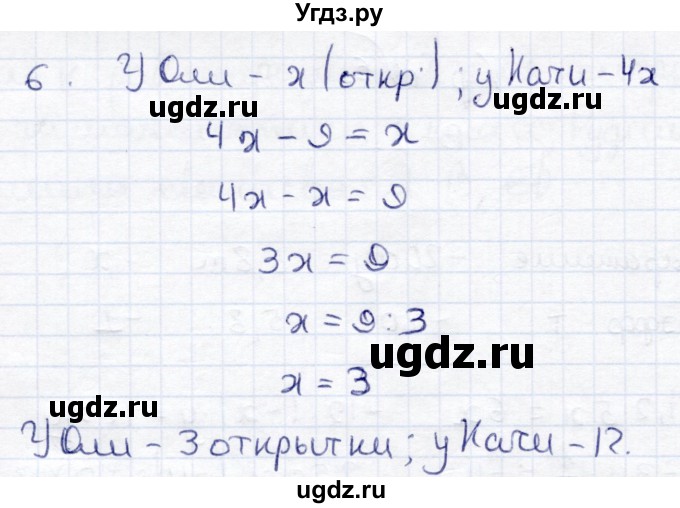 Угдз.ру
6. У Оли - x (откр.); у Кати - 4x
ugdz.ru
ugdz.ru
4x - 9 = x
4x - x = 9
3x = 9
x = 9 : 3
ugdz.ru
x = 3
ugdz.ru
У Оли - 3 открытки; у Кати - 12.
ugdz.ru
ugdz.ru